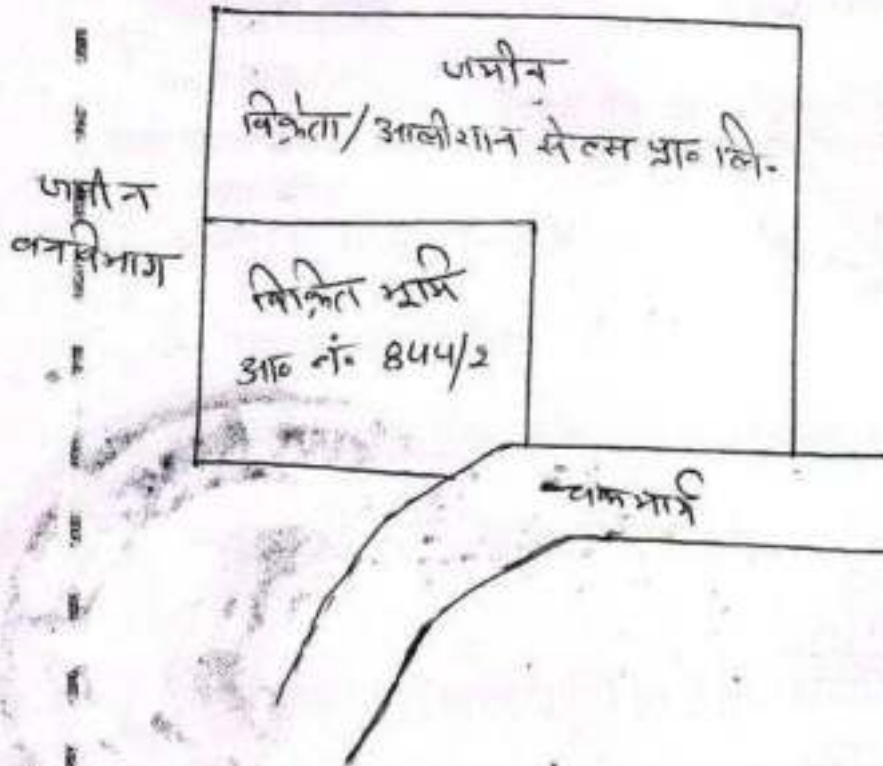 जमीन
विक्रेता/आलीशान सेल्स प्रा० लि.
जमीन
वनविभाग
विक्रित भूमि
आ० नं० 844/2
चकमार्ग